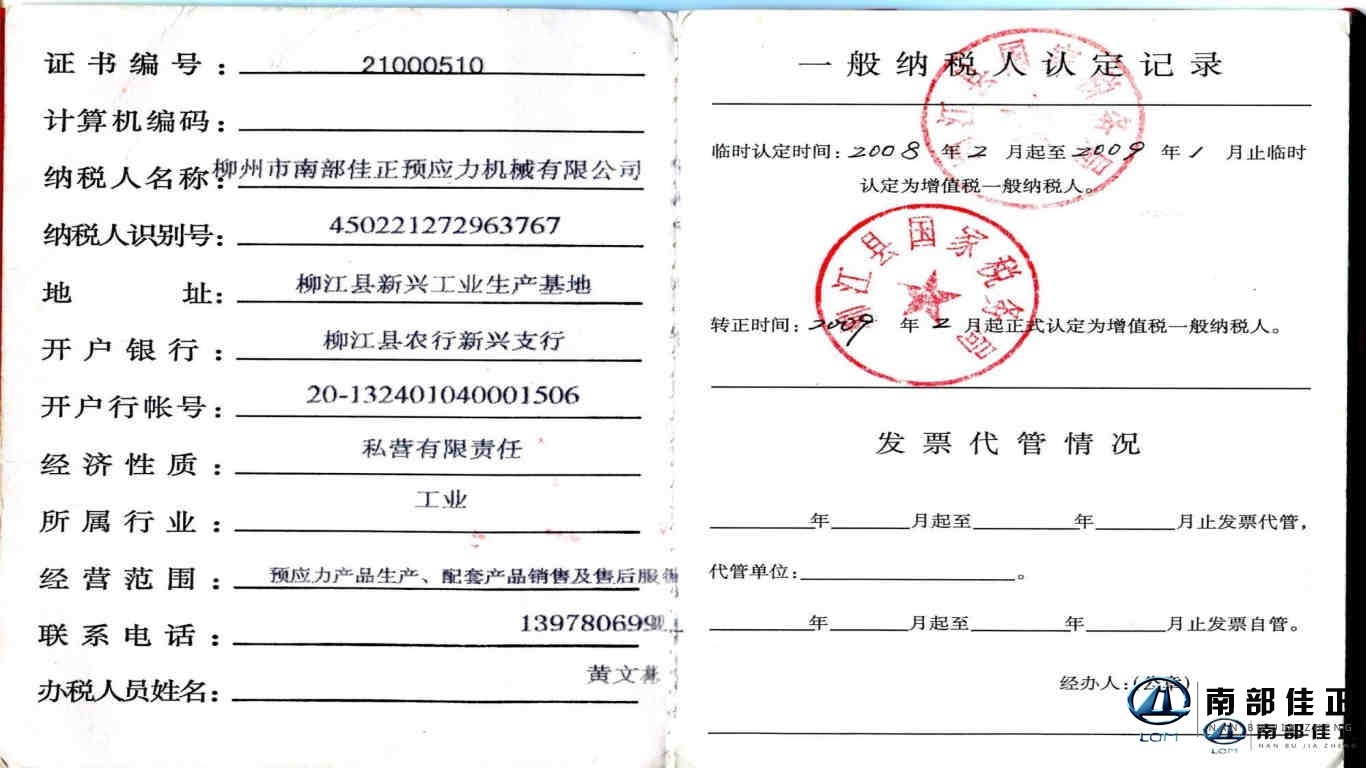 证书编号：21000510
计算机编码：
纳税人名称：柳州市南部佳正预应力机械有限公司
纳税人识别号：450221272963767
地址：柳江县新兴工业生产基地
开户银行：柳江县农行新兴支行
开户行帐号：20-132401040001506
经济性质：私营有限责任
所属行业：工业
经营范围：预应力产品生产、配套产品销售及售后服
联系电话：139780699
办税人员姓名：黄文
一般纳税人认定记录
临时认定时间：2008年2月起至2009年1月止临时
认定为增值税一般纳税人。
江县国家税务局
柳江县国家税务局
转正时间：2009年2月起正式认定为增值税一般纳税人。
发票代管情况
年 月起至 年 月止发票代管，
代管单位： 。
年 月起至 年 月止发票自管。
经办人：(公章)
LQM 南部佳正
NAN BU JIA ZHENG
LQM 南部佳正
NAN BU JIA ZHENG